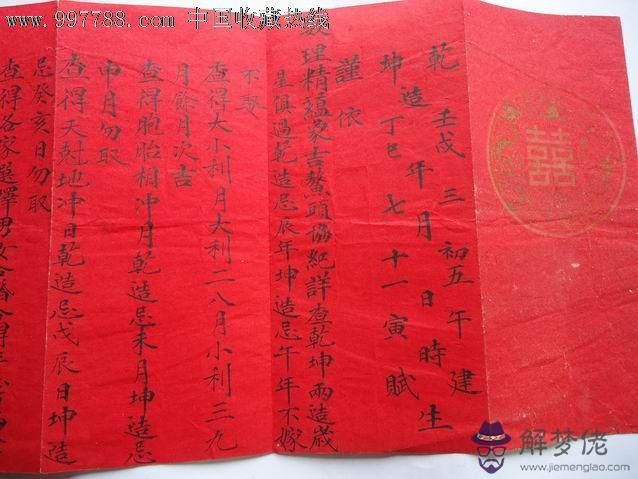 www.997788.com 中国收藏热线
囍
乾 壬戌 三 初五 午 建
造 年 月 日 時 生
坤 丁巳 七 十一 寅 賦
謹依
理精蘊象吉鰲頭協紀詳查乾坤兩造歲
星俱過乾造忌辰年坤造忌午年不嫁
不娶
查得大小利月大利二八月小利三九
月餘月次吉
查得胞胎相冲月乾造忌未月坤造忌
申月勿取
查得天尅地冲日乾造忌戊辰日坤造
忌癸亥日勿取
查得各家選擇男女合婚合得
解梦佬
www.jiemenglao.com